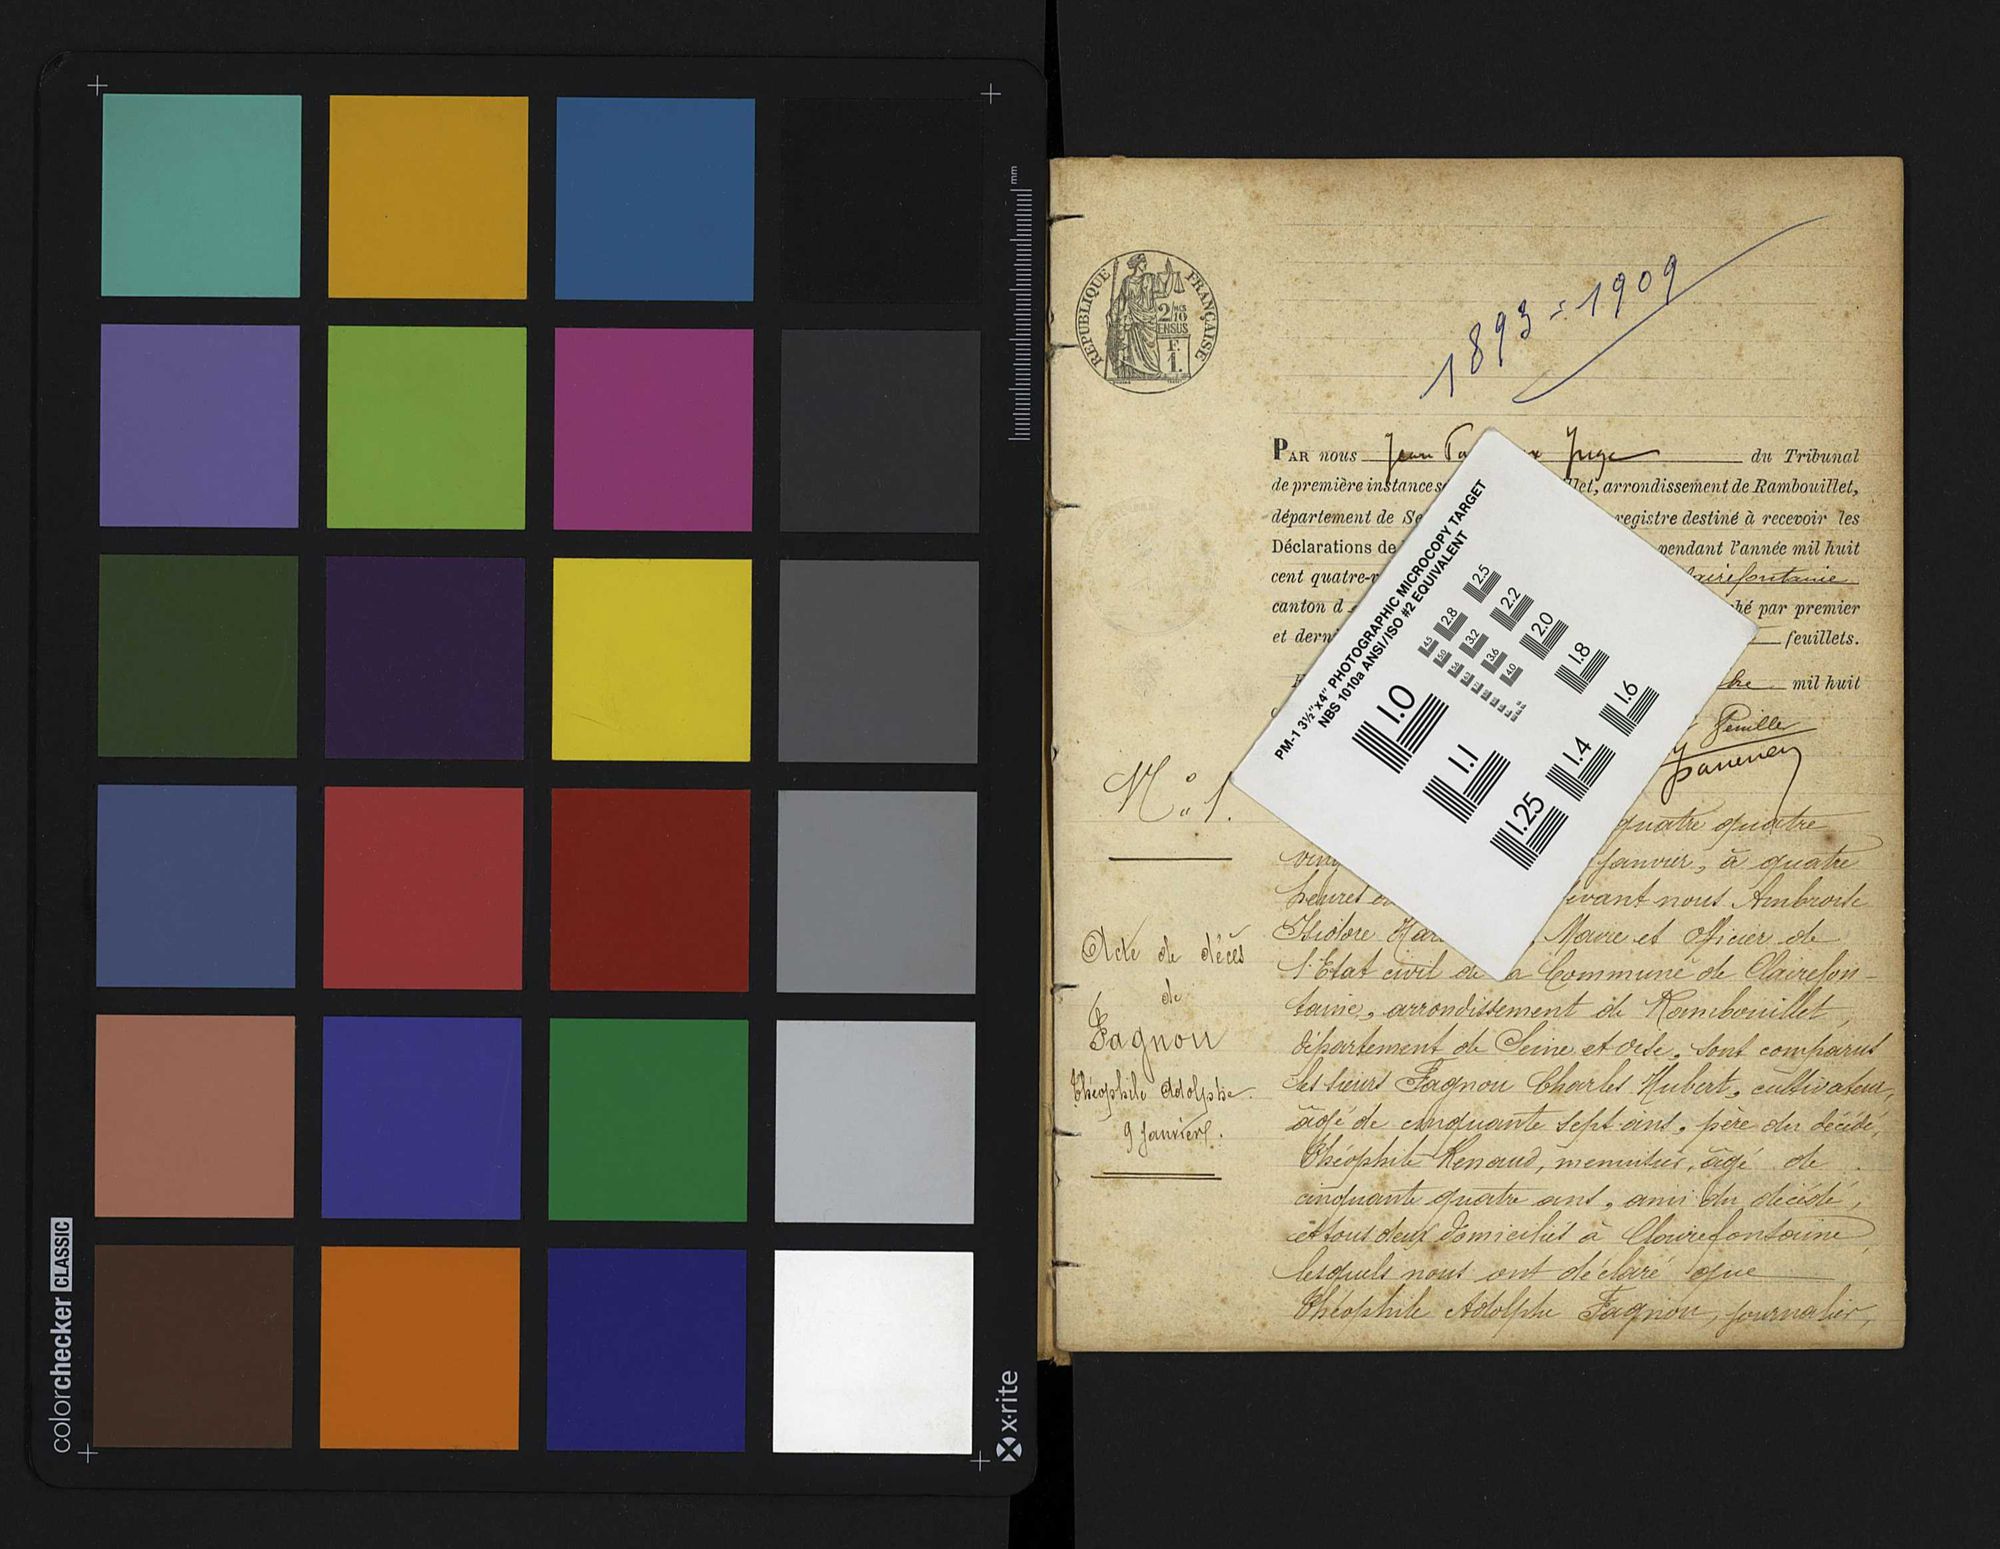 colorchecker CLASSIC
x-rite
mm
RÉPUBLIQUE FRANÇAISE
2/10
EN SUS
F.
1.
1893 = 1909
PAR nous Jean Juge du Tribunal
de première instance llet, arrondissement de Rambouillet,
département de Se registre destiné à recevoir les
Déclarations de pendant l'année mil huit
cent quatre-v lairefontaine
canton d hé par premier
et derni feuillets.
bre mil huit
PM-1 3½"x4" PHOTOGRAPHIC MICROCOPY TARGET
NBS 1010a ANSI/ISO #2 EQUIVALENT
1.0
1.1
1.25
1.4
1.6
1.8
2.0
2.2
2.5
2.8
3.2
3.6
4.0
4.5
5.0
N° 1.
Acte de décès
de
Fagnou
Théophile Adolphe.
9 Janvier.
quatre quatre
ving Janvier, à quatre
heures evant nous Ambroise
Isidore Maire et officier de
l'Etat civil de la Commune de Clairefon-
taine, arrondissement de Rambouillet,
département de Seine et Oise, sont comparus
les sieurs Fagnou Charles Hubert, cultivateur,
âgé de cinquante sept ans, père du décédé,
Théophile Renaud, menuisier, âgé de
cinquante quatre ans, ami du décédé,
et tous deux domiciliés à Clairefontaine
lesquels nous ont déclaré que
Théophile Adolphe Fagnou, journalier,